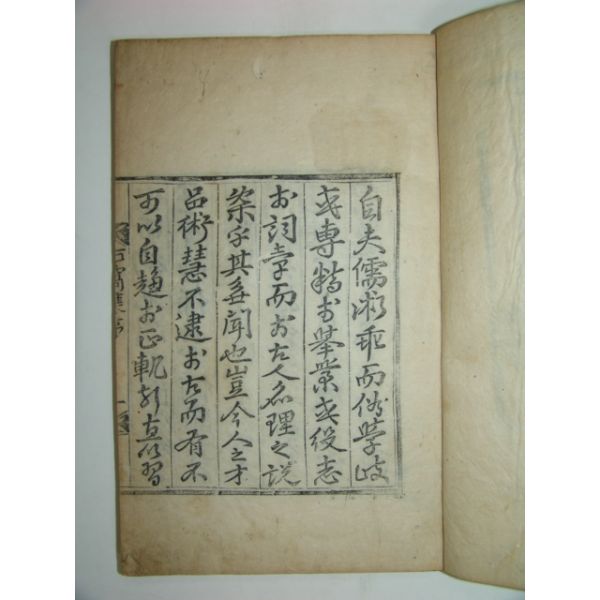 自夫儒術乖而俗學歧
或專精於擧業或役志
於詞章而於古人名理之說
粢乎其無聞也豈今人之才
品術慧不逮於古而有不
可以自趨於正軌祈直以習